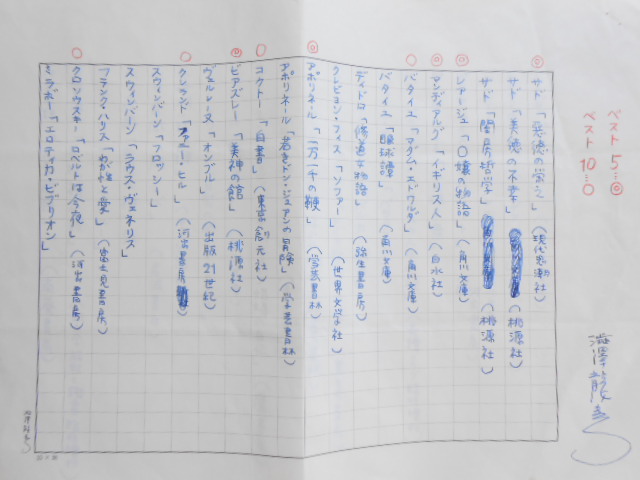 ベスト5…◎
ベスト10…○
澁澤龍彦
◎ サド「悪徳の栄え」（現代思潮社）
サド「美徳の不幸」（桃源社）
サド「閨房哲学」（桃源社）
◎ レアージュ「O嬢の物語」（角川文庫）
◎ マンディアルグ「イギリス人」（白水社）
○ バタイユ「マダム・エドワルダ」（角川文庫）
バタイユ「眼球譚」（角川文庫）
ディドロ「修道女物語」（弥生書房）
クレビヨン・フィス「ソファー」（世界文学社）
◎ アポリネール「一万一千の鞭」（学芸書林）
アポリネール「若きドン・ジュアンの冒険」（学芸書林）
○ コクトー「白書」（東京創元社）
◎ ビアズレー「美神の館」（桃源社）
ヴェルレーヌ「オンブル」（出版21世紀）
○ クレランド「ファニー・ヒル」（河出書房）
スウィンバーン「フロッシー」
スウィンバーン「ラウス・ヴェネリス」
フランク・ハリス「わが性と愛」（富士見書房）
○ クロソウスキー「ロベルトは今夜」（河出書房）
ミラボー「エロティカ・ビブリオン」